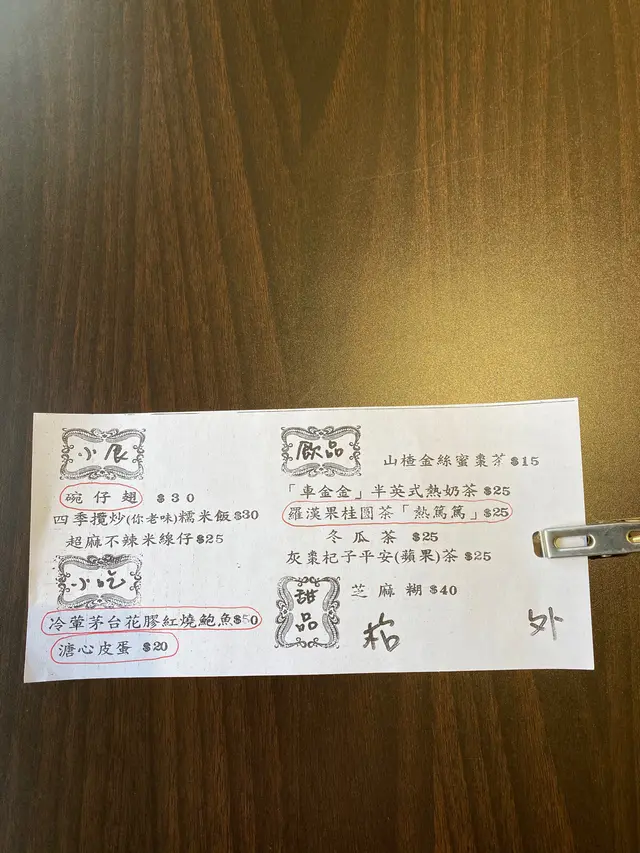 小食
碗仔翅 $30
四季攬炒(你老味)糯米飯$30
超麻不辣米線仔$25
小吃
冷葷茅台花膠紅燒鮑魚$50
溏心皮蛋 $20
飲品
山楂金絲蜜棗茶 $15
「車金金」半英式熱奶茶 $25
羅漢果桂圓茶「熱篤篤」$25
冬瓜茶 $25
灰棗杞子平安(蘋果)茶 $25
甜品
芝麻糊 $40
外